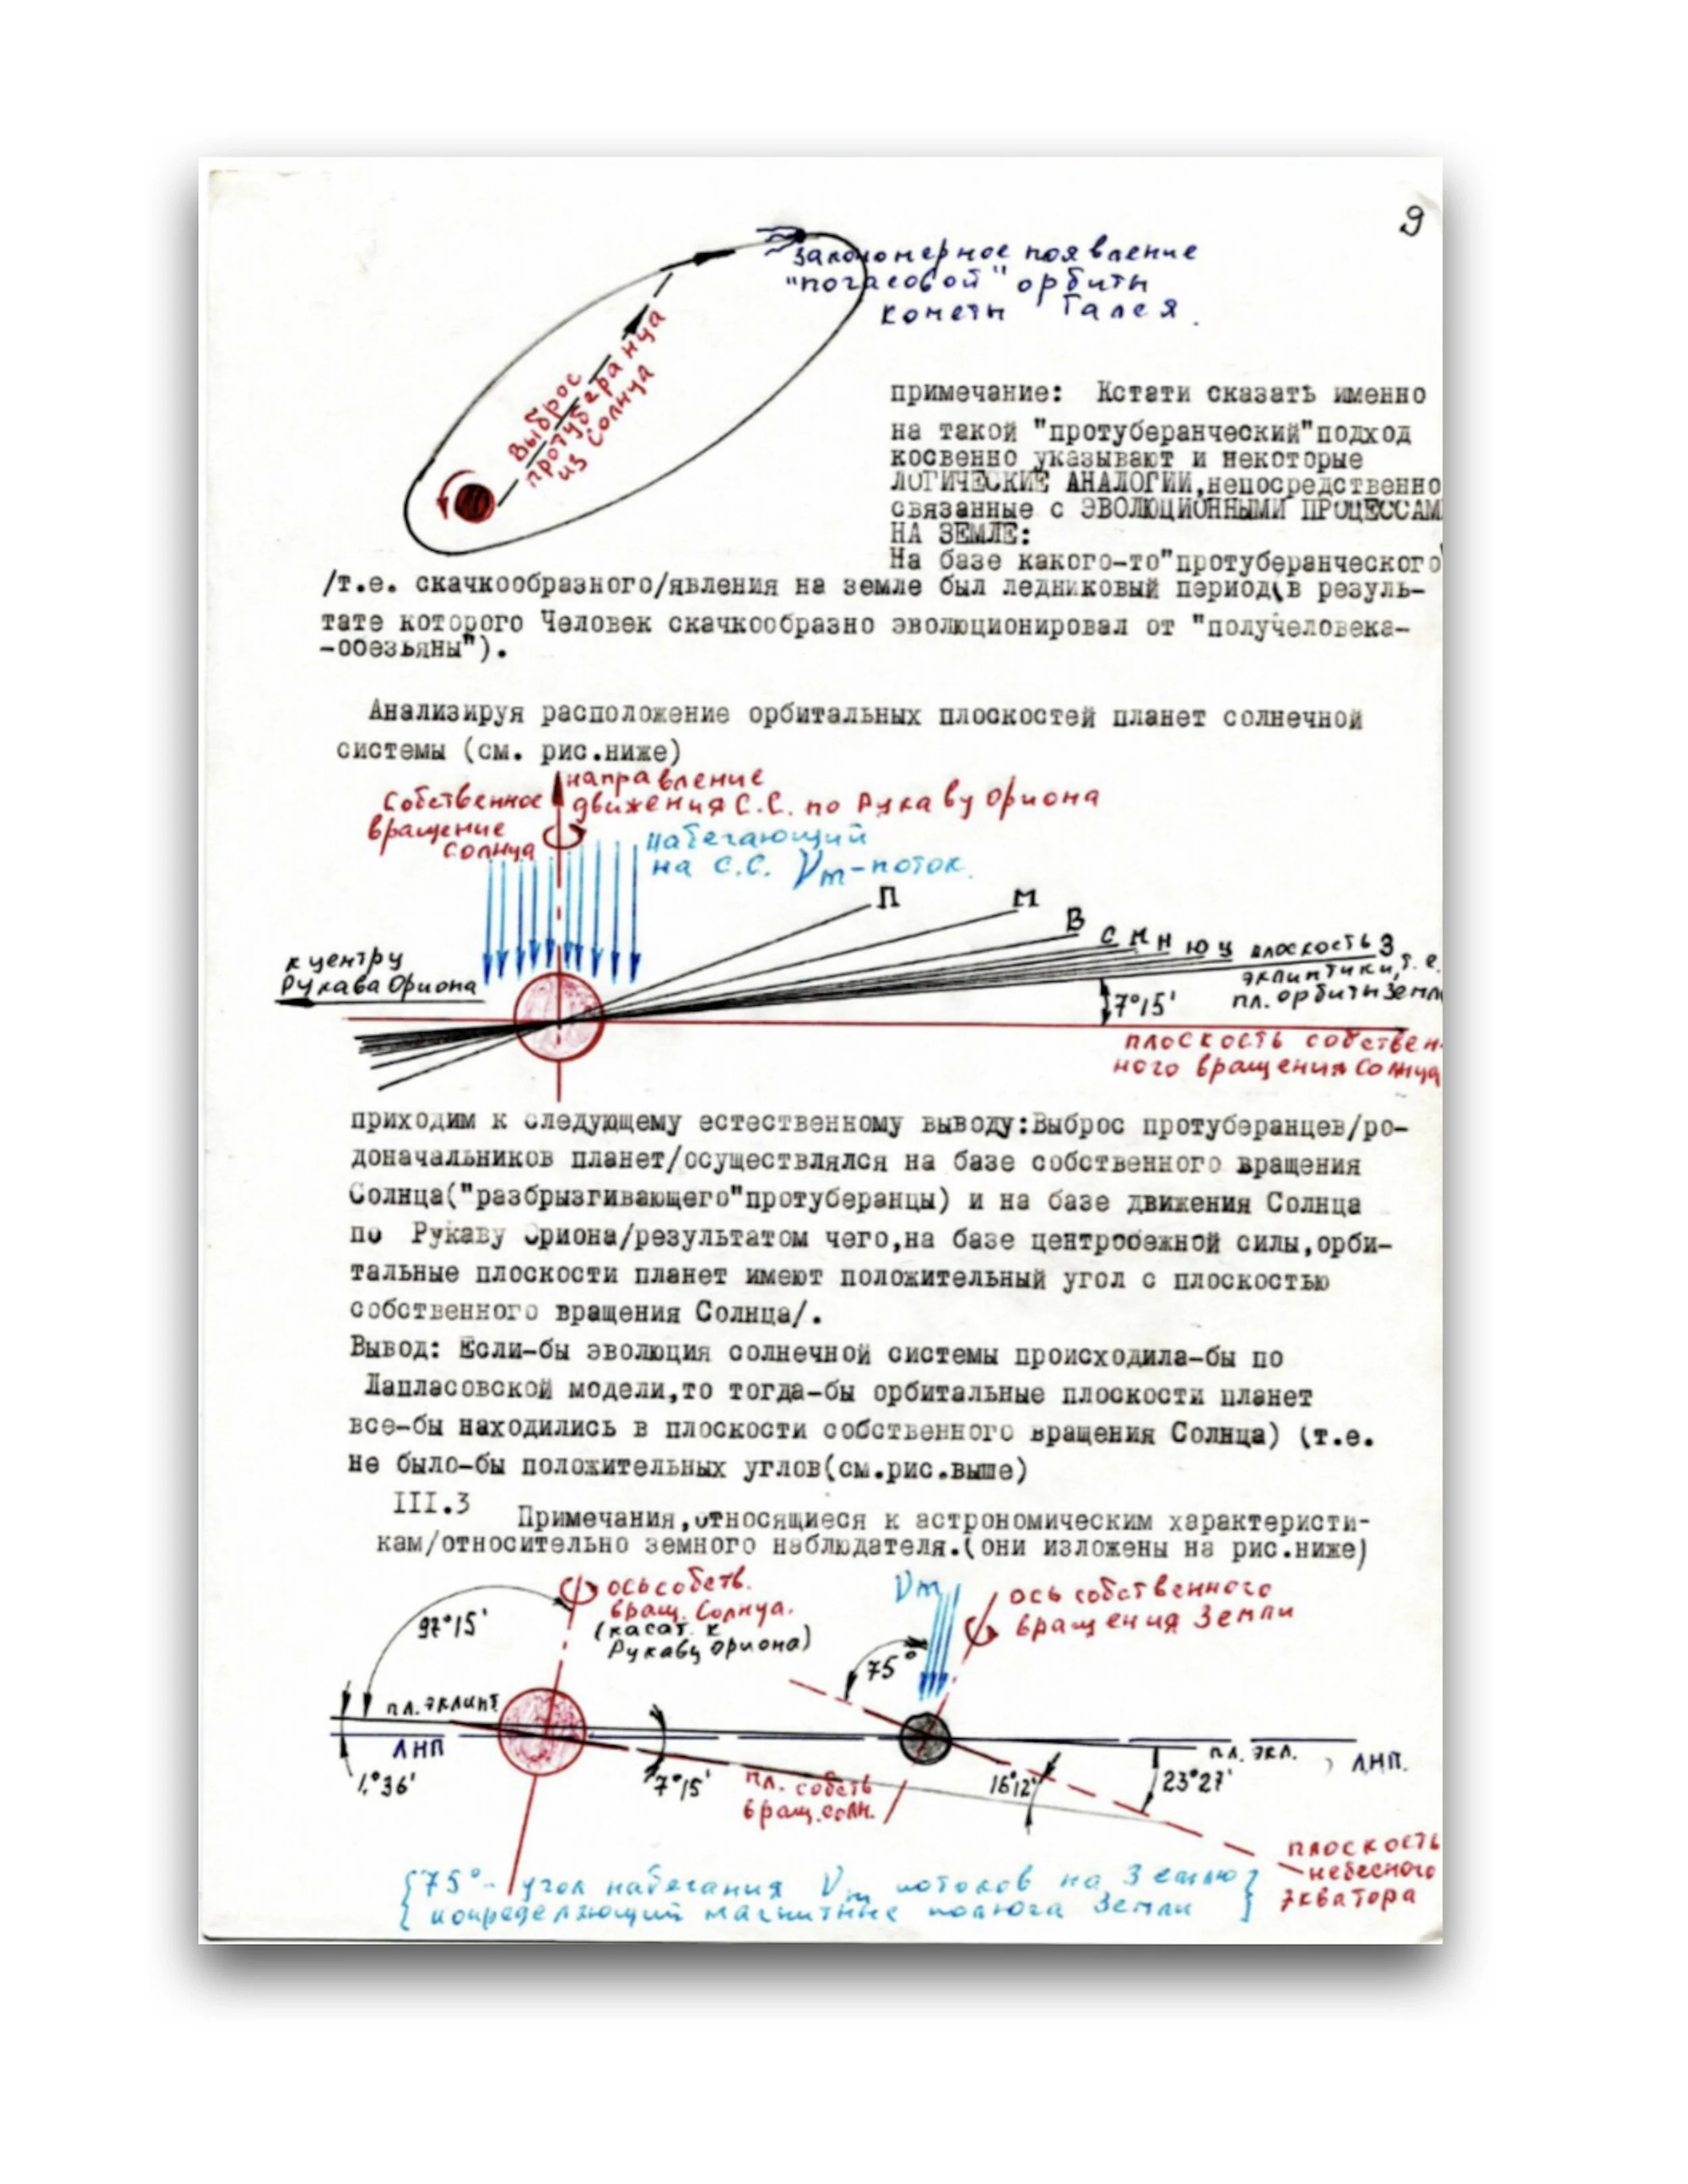 9
Закономерное появление
"погасовой" орбиты
кометы Галея.
Выброс
протуберанца
из Солнца
примечание: Кстати сказать именно
на такой "протуберанческий"подход
косвенно указывают и некоторые
ЛОГИЧЕСКИЕ АНАЛОГИИ,непосредственно
связанные с ЭВОЛЮЦИОННЫМИ ПРОЦЕССАМ
НА ЗЕМЛЕ:
На базе какого-то"протуберанческого"
/т.е. скачкообразного/явления на земле был ледниковый период(в резуль-
тате которого Человек скачкообразно эволюционировал от "получеловека-
-обезьяны").
Анализируя расположение орбитальных плоскостей планет солнечной
системы (см. рис.ниже)
направление
движения С.С. по Рукаву Ориона
Собственное
вращение
Солнца
набегающий
на С.С. Vm-поток.
П М В С М Н Ю У плоскость З
эклиптики, т.е.
пл. орбиты Земл
к центру
Рукава Ориона
7°15'
плоскость собствен-
ного вращения Солнца
приходим к следующему естественному выводу:Выброс протуберанцев/ро-
доначальников планет/осуществлялся на базе собственного вращения
Солнца("разбрызгивающего"протуберанцы) и на базе движения Солнца
по Рукаву Ориона/результатом чего,на базе центробежной силы,орби-
тальные плоскости планет имеют положительный угол с плоскостью
собственного вращения Солнца/.
Вывод: Если-бы эволюция солнечной системы происходила-бы по
Лапласовской модели,то тогда-бы орбитальные плоскости планет
все-бы находились в плоскости собственного вращения Солнца) (т.е.
не было-бы положительных углов(см.рис.выше)
III.3 Примечания,относящиеся к астрономическим характеристи-
кам/относительно земного наблюдателя.(они изложены на рис.ниже)
97°15'
ось собств.
вращ. Солнца.
(касат. к
Рукаву Ориона)
Vm
ось собственного
вращения Земли
75°
пл. эклипт
ЛНП
1°36'
7°15'
пл. собств
вращ. солн.
16°12'
23°27'
пл. экл.
ЛНП.
плоскость
небесного
экватора
{75°- угол набегания Vm потоков на Землю}
и определяющий магнитные полюса Земли